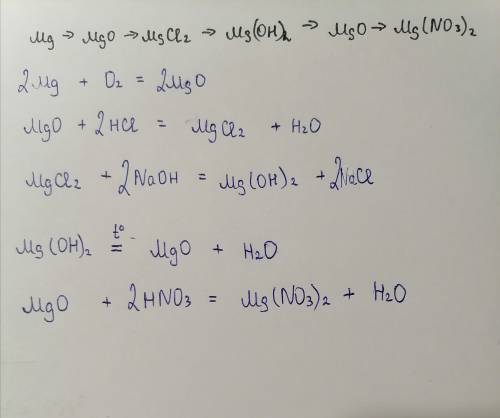 Mg → MgO → MgCl2 → Mg(OH)2 → MgO → Mg(NO3)2
2Mg + O2 = 2MgO
MgO + 2HCl = MgCl2 + H2O
MgCl2 + 2NaOH = Mg(OH)2 + 2NaCl
t°
Mg(OH)2 = MgO + H2O
MgO + 2HNO3 = Mg(NO3)2 + H2O